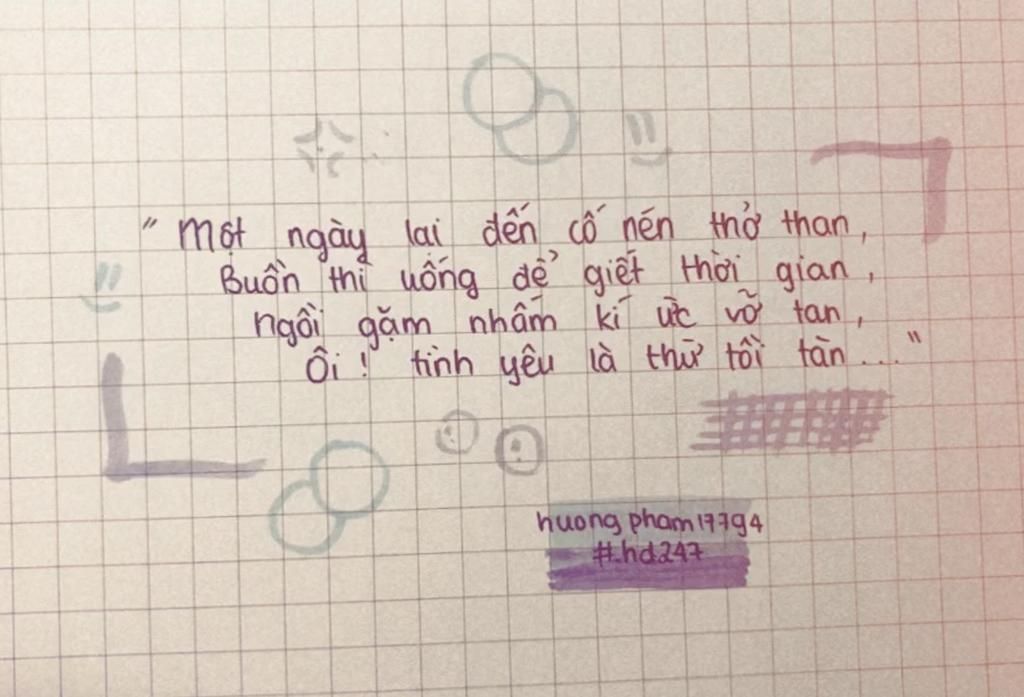 "Một ngày lại đến cố nén thở than,
Buồn thì uống để giết thời gian,
ngồi gặm nhấm kí ức vỡ tan,
Ôi! tình yêu là thứ tồi tàn..."
huong pham17794
#hd247